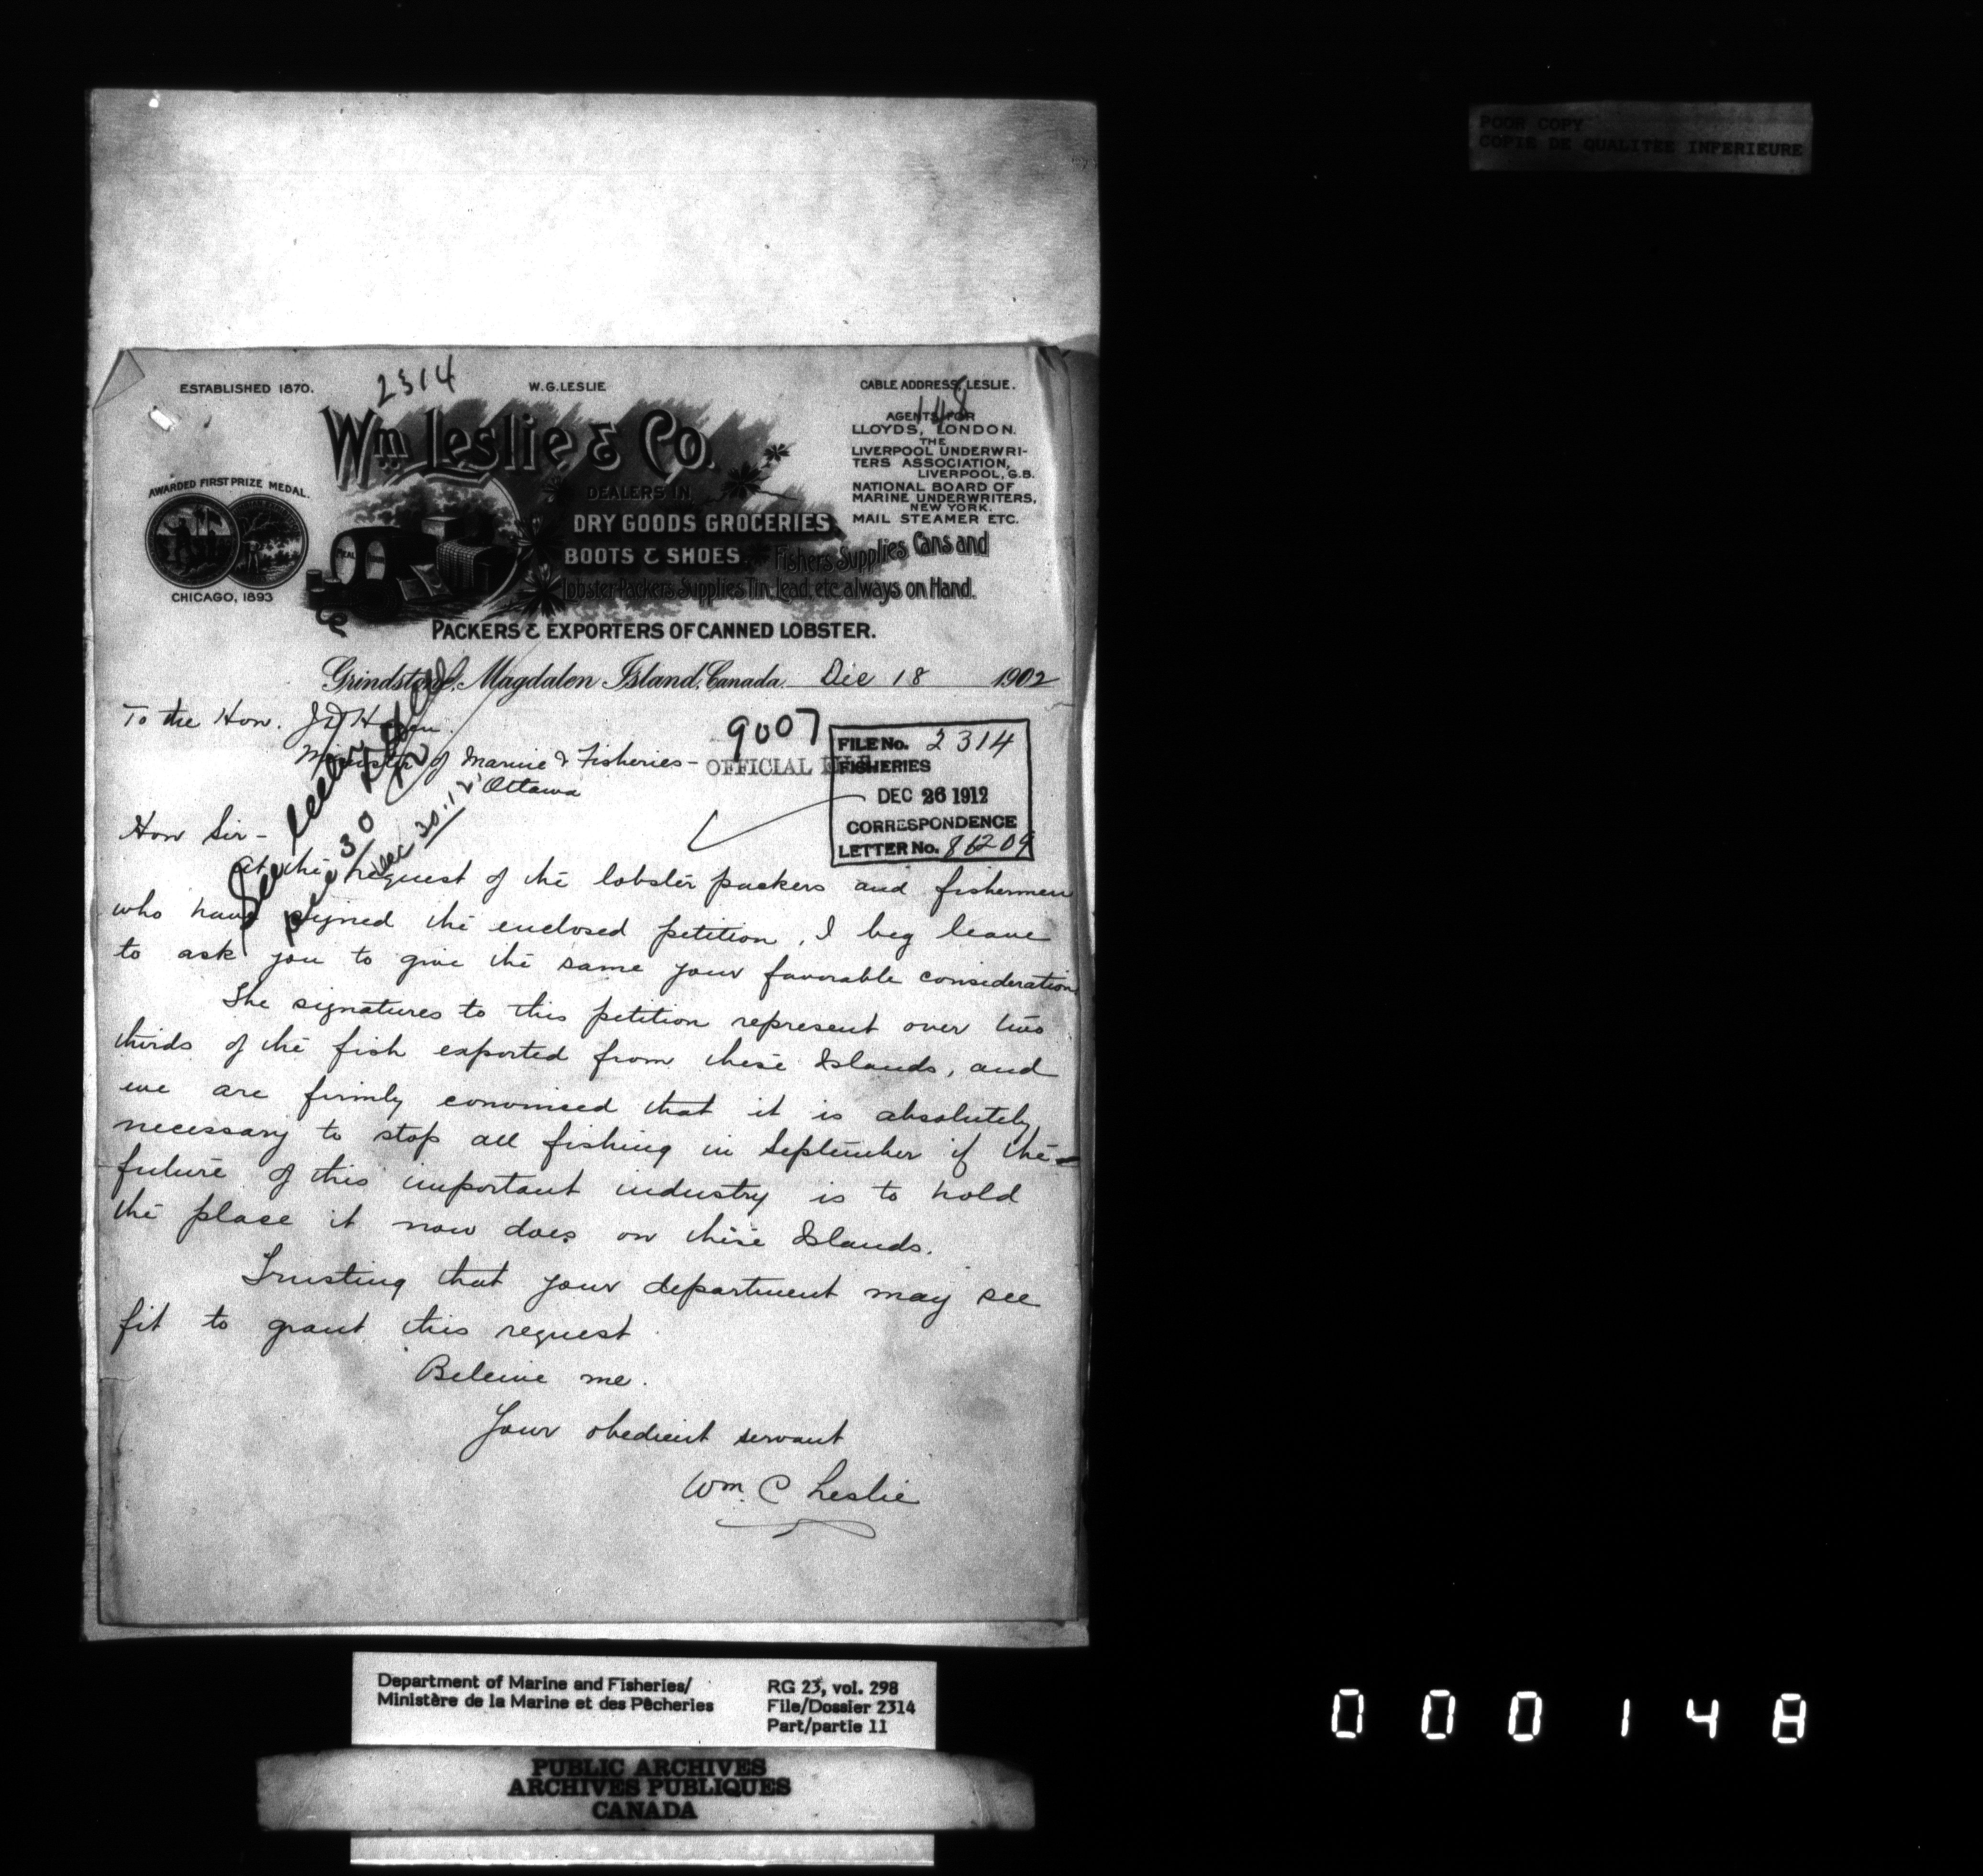 POOR COPY
COPIE DE QUALITEE INFERIEURE
2314
ESTABLISHED 1870.
W.G.LESLIE
CABLE ADDRESS, LESLIE.
148
Wm Leslie & Co.
AGENTS FOR
LLOYDS, LONDON.
THE
LIVERPOOL UNDERWRI-
TERS ASSOCIATION,
LIVERPOOL, G.B.
NATIONAL BOARD OF
MARINE UNDERWRITERS,
NEW YORK.
MAIL STEAMER ETC.
AWARDED FIRST PRIZE MEDAL.
CHICAGO, 1893
DEALERS IN
DRY GOODS GROCERIES
BOOTS & SHOES. Fishers Supplies Cans and
Lobster Packers Supplies Tin, Lead, etc. always on Hand.
PACKERS & EXPORTERS OF CANNED LOBSTER.
Grindstone, Magdalen Island, Canada. Dec 18 1902
To the Hon. J D Hazen.
Minister of Marine & Fisheries-
Ottawa
9007
OFFICIAL FILE
FILE No. 2314
FISHERIES
DEC 26 1912
CORRESPONDENCE
LETTER No. 86209
See
Dec 30/12
Dec 30.12
Hon Sir-
At the request of the lobster packers and fishermen
who have signed the enclosed petition, I beg leave
to ask you to give the same your favorable consideration
The signatures to this petition represent over two
thirds of the fish exported from these Islands, and
we are firmly convinced that it is absolutely
necessary to stop all fishing in September if the
future of this important industry is to hold
the place it now does on these Islands.
Trusting that your department may see
fit to grant this request.
Beleive me.
Your obedient servant
Wm. C Leslie
Department of Marine and Fisheries/
Ministère de la Marine et des Pêcheries
RG 23, vol. 298
File/Dossier 2314
Part/partie 11
PUBLIC ARCHIVES
ARCHIVES PUBLIQUES
CANADA
000148